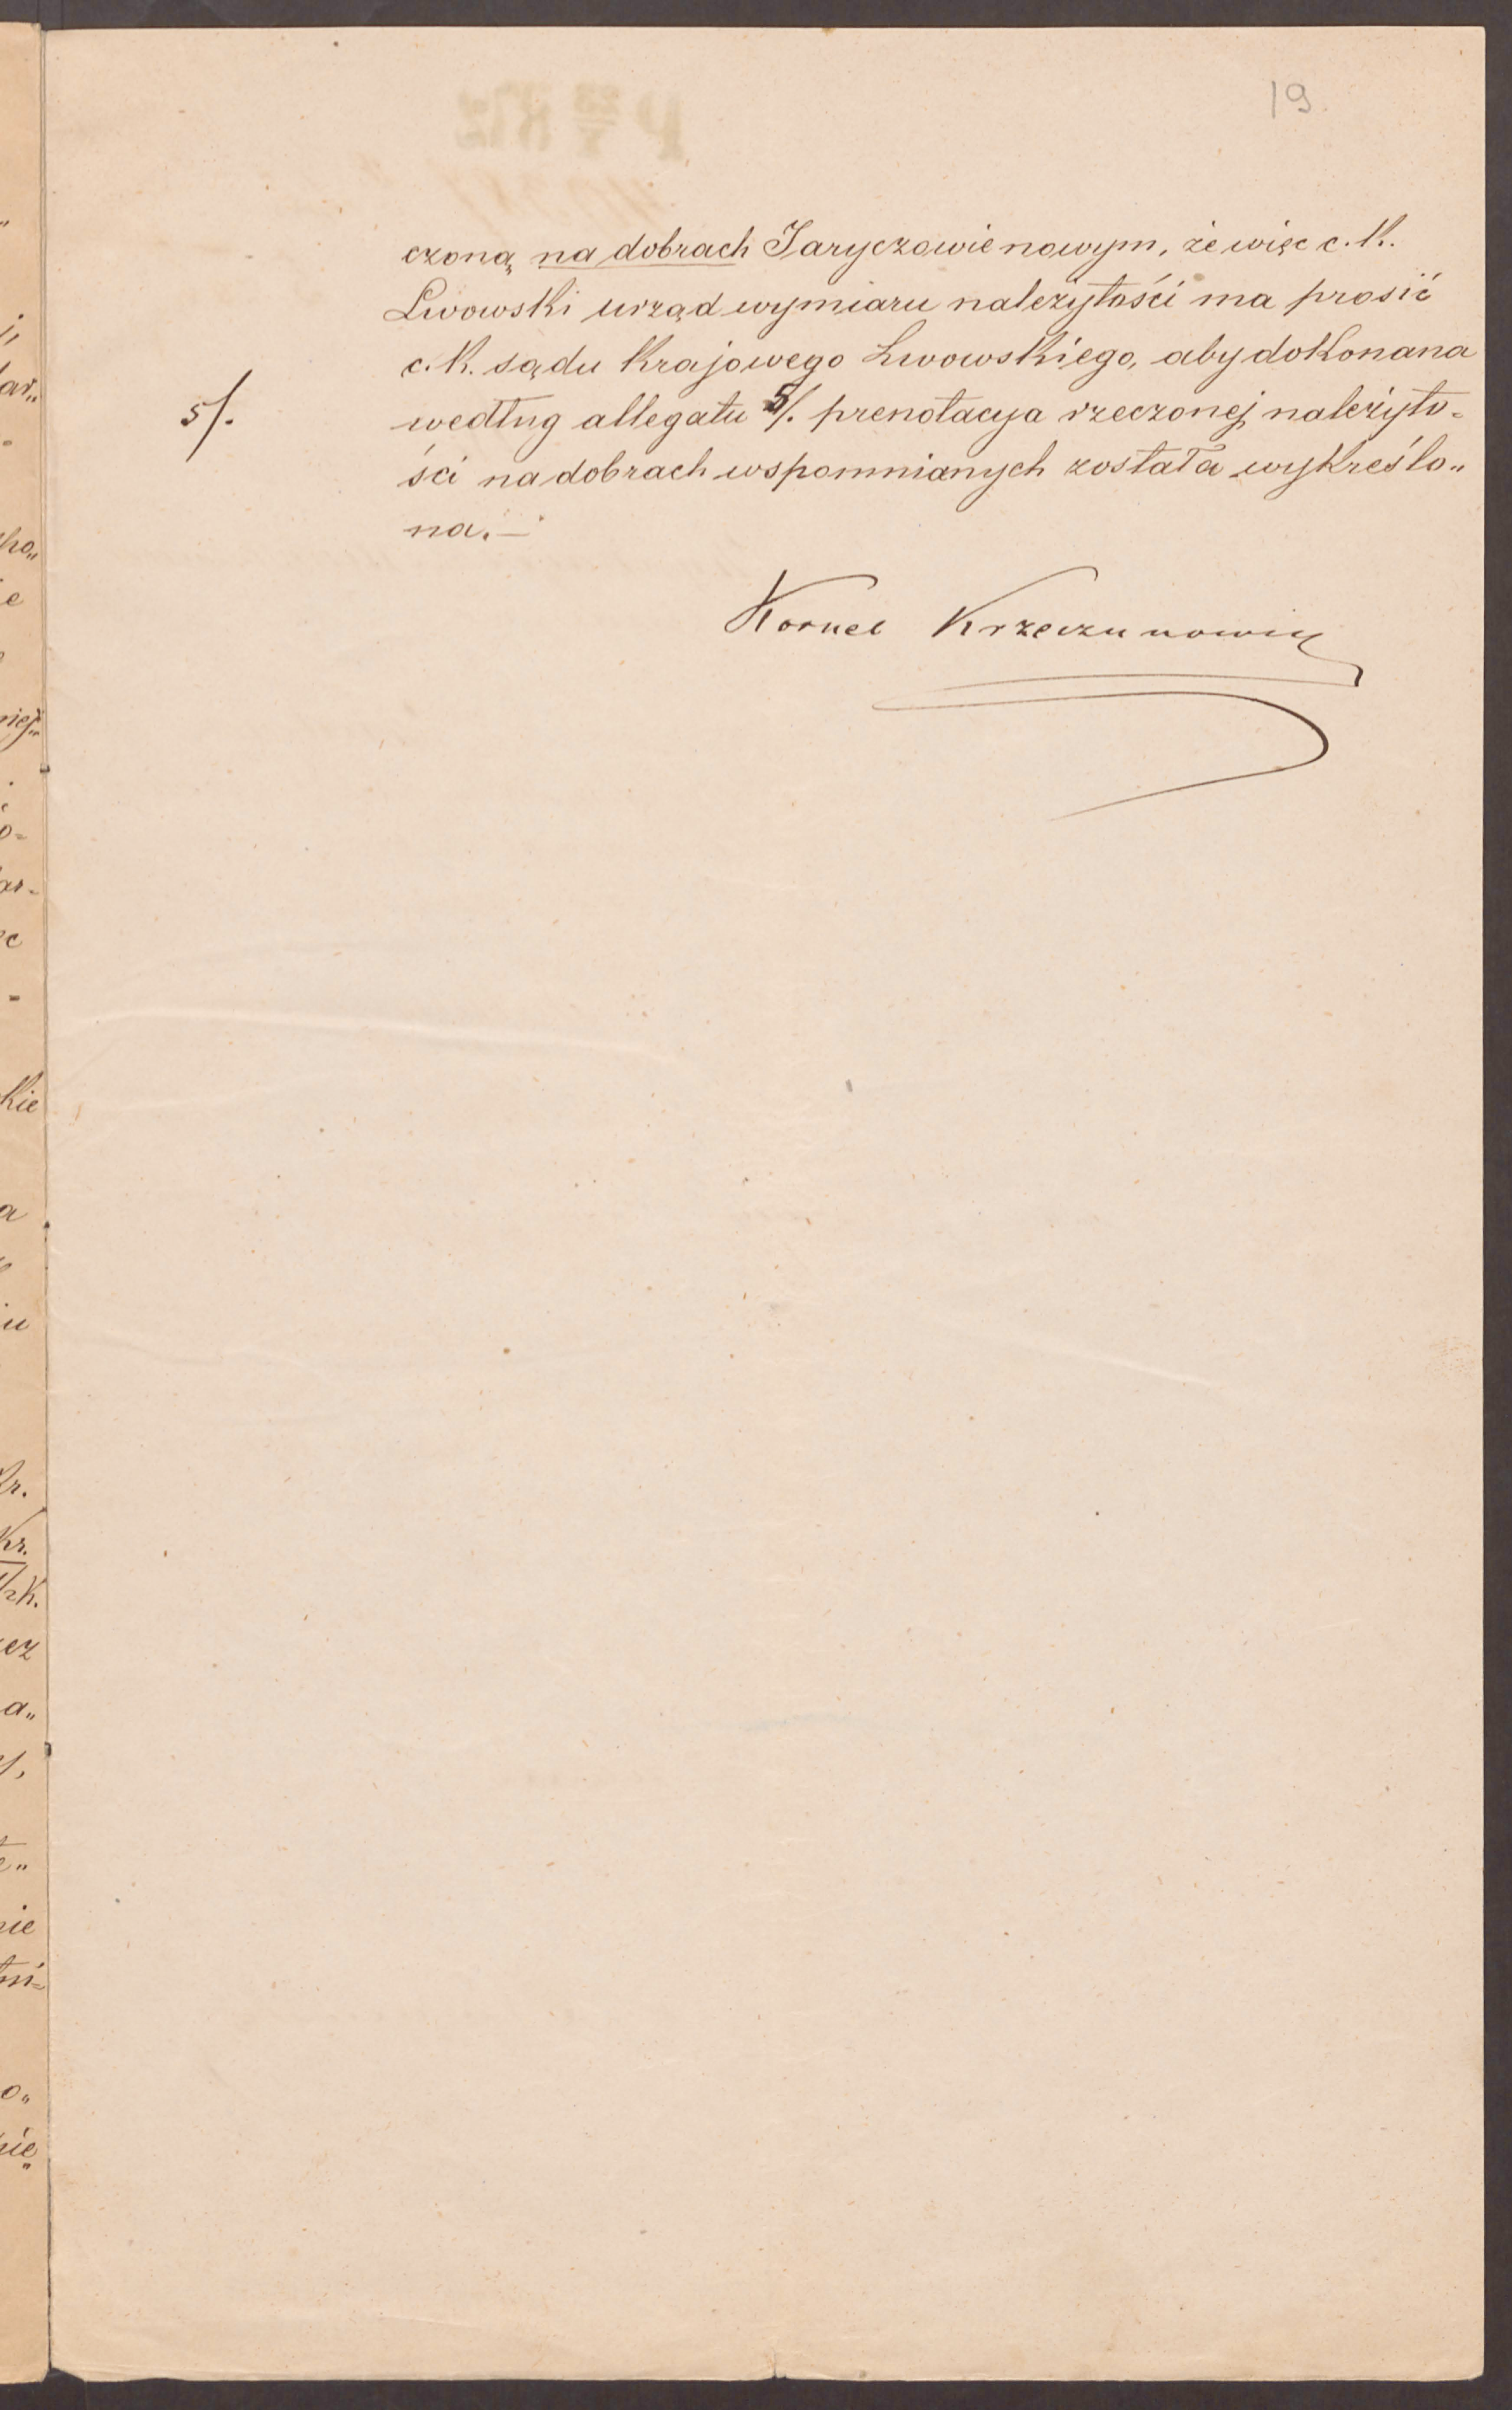 19.
czoną na dobrach Jaryczowie nowym, że więc c. K.
Lwowski urząd wymiaru należytości ma prosić
c. K. sądu Krajowego Lwowskiego, aby dokonana
5/.
według allegatu 5/. prenotacya rzeczonej należyto=
ści na dobrach wspomnianych została wykreślo„
na.—
Kornel Krzeczunowicz